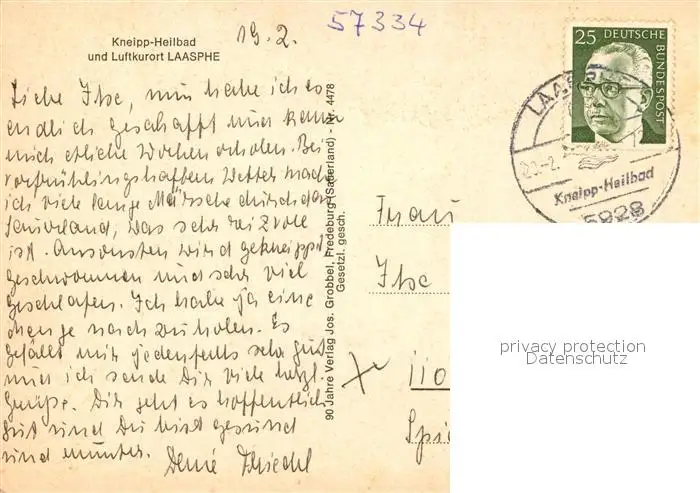 57334
19.2.
Kneipp-Heilbad
und Luftkurort LAASPHE
Liebe Ilse, nun habe ich es
endlich geschafft und kann
mich etliche Wochen erholen. Bei
vorfrühlingshaftem Wetter mache
ich viele lange Märsche durch das
Sauerland, was sehr reizvoll
ist. Ansonsten wird gekneippt,
geschwommen und sehr viel
geschlafen. Ich habe ja eine
Menge nachzuholen. Es
gefällt mir jedenfalls sehr gut
und ich sende Dir viele herzl.
Grüße. Dir geht es hoffentlich
gut und Du bist gesund
und munter. Deine
90 Jahre Verlag Jos. Grobbel, Fredeburg (Sauerland) - Nr. 4478
Gesetzl. gesch.
25 DEUTSCHE
BUNDESPOST
LAASPHE
Kneipp-Heilbad
5928
Frau
Ilse
110
privacy protection
Datenschutz